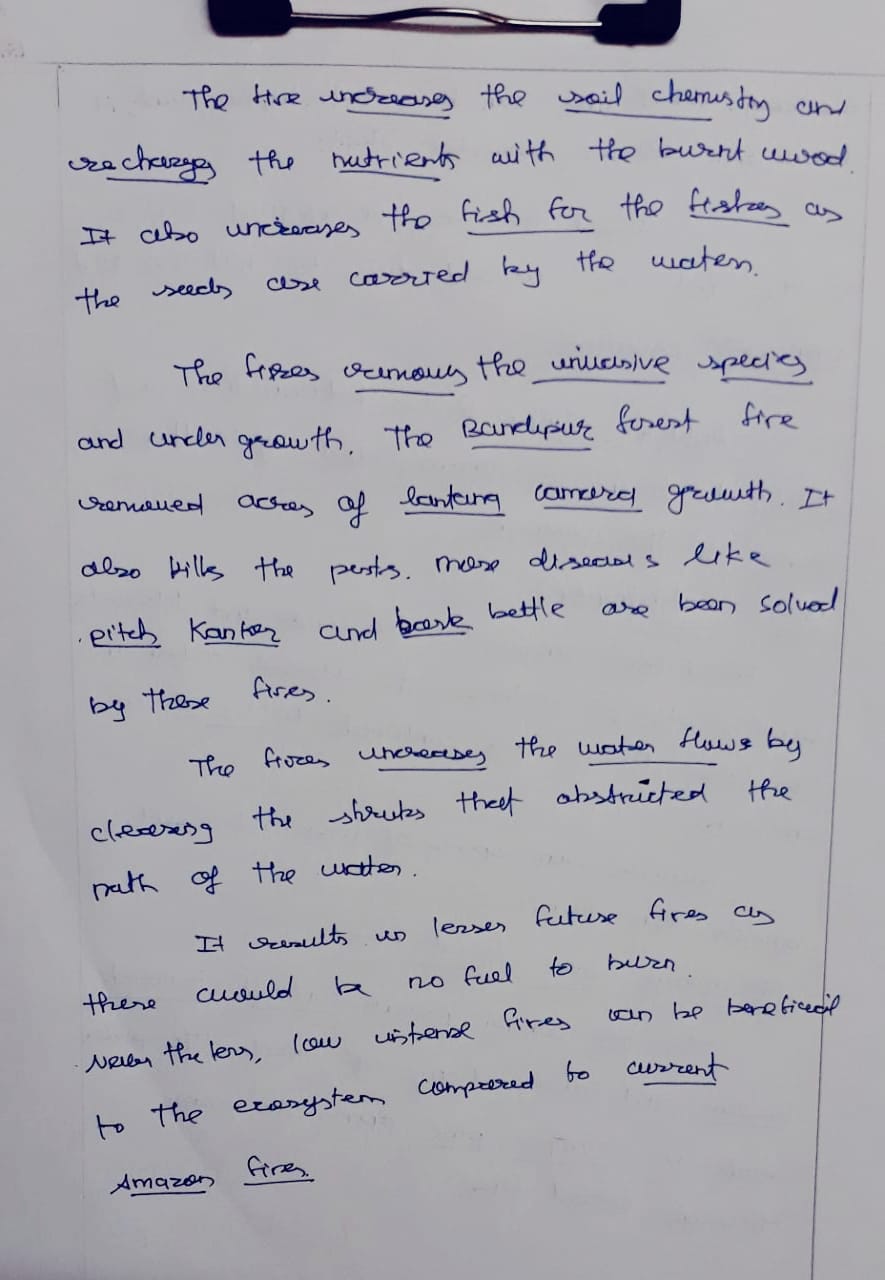 The fire increases the soil chemistry and
recharges the nutrients with the burnt wood.
It also increases the fish for the fishes as
the seeds are carried by the water.
The fires removes the invasive species
and under growth. The Bandipur forest fire
removed acres of lantana camera growth. It
also kills the pests. More diseases like
pitch Kanker and bark bettle are been solved
by these fires.
The fires increases the water flows by
clearing the shrubs that obstructed the
path of the water.
It results in lesser future fires as
there would be no fuel to burn.
Never the less, low intense fires can be beneficial
to the ecosystem compared to current
Amazon fires.